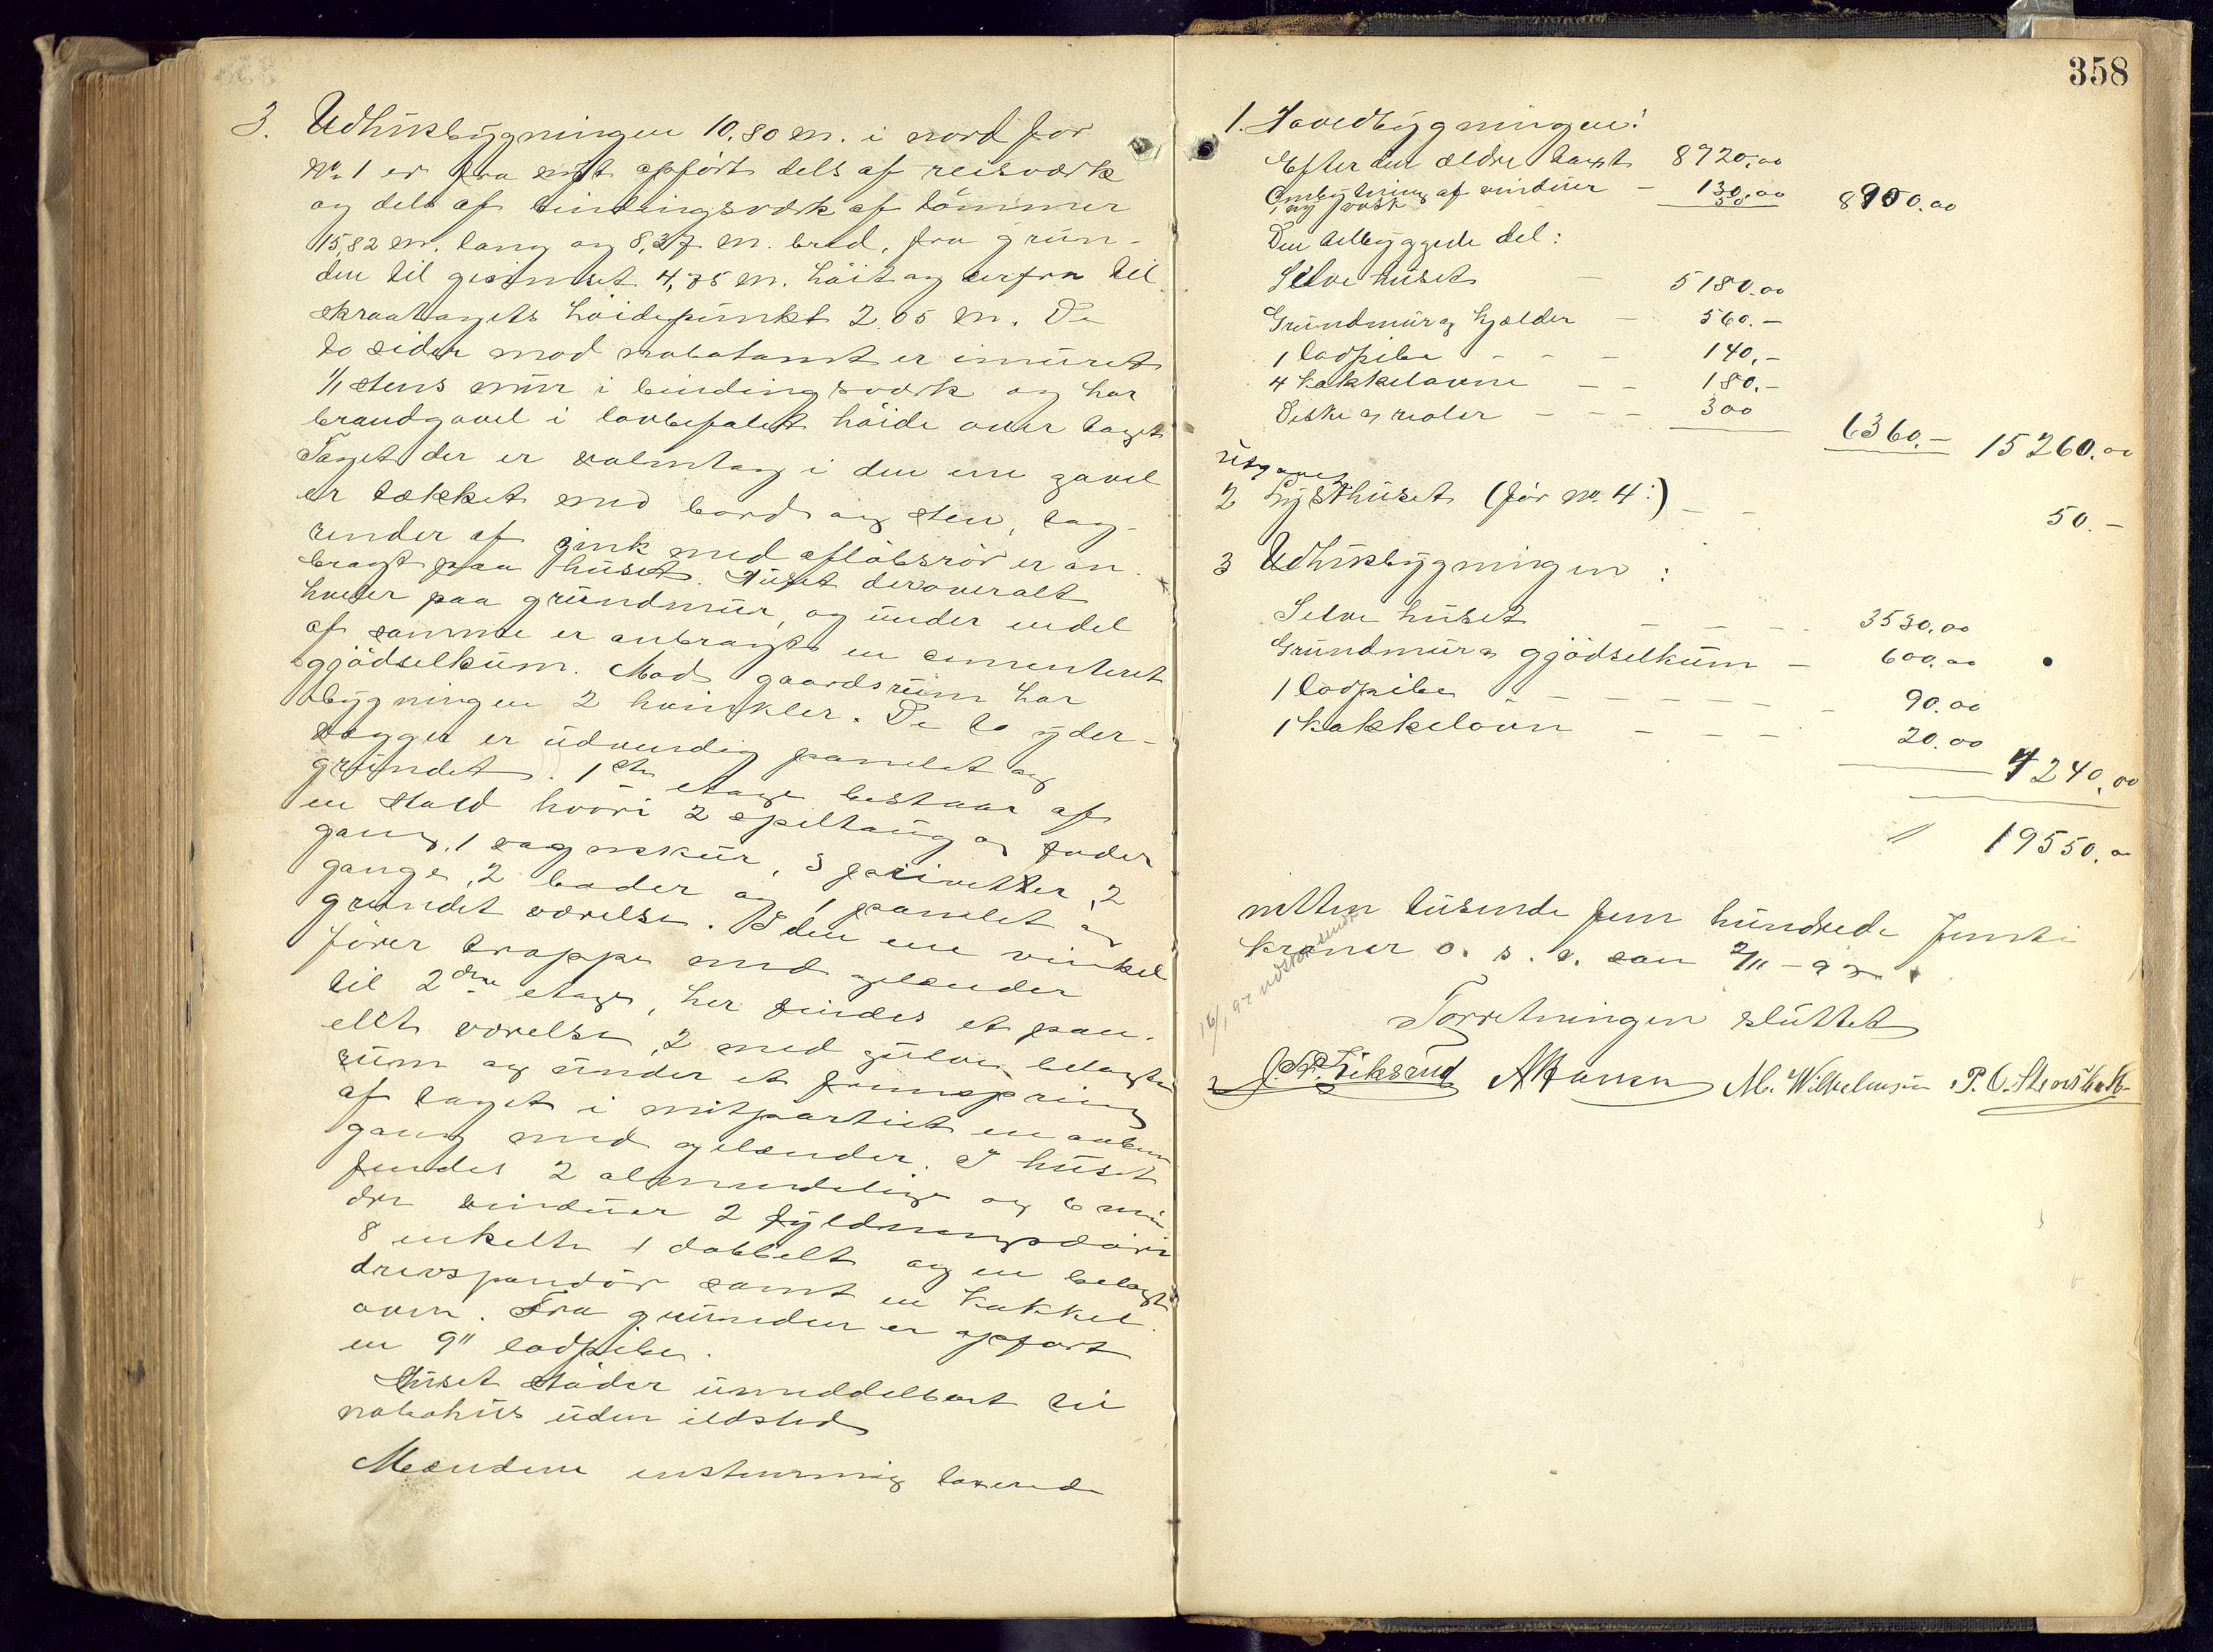 3. Udhusbygningen 10.80 m. i nord for
No 1 er fra nyt opført dels af reisværk
og dels af bindingsværk af tømmer
15,82 m. lang og 8,27 m. bred, fra grün-
den til gesimset 4,75 m. høit og derfra til
skraatagets høidepünkt 2.05 m. De
to sider mod nabotomt er imüret
1/1 stens mür i bindingsværk og har
brandgavel i lovbefalet høide over taget
Taget der er valmtag i den ene gavel
er tækket med bord og sten, tag-
render af zink med afløbsrør er an-
bragt paa hüset. Hüset der overalt
hviler paa gründmür, og ünder endel
af samme er anbragt en cementeret
gjødselküm. Mod gaardsrüm har
bygningen 2 hvinkler. De to yder-
vægger er üdvendig panelet og
gründet. 1ste etage bestaar af
en stald hvori 2 spiltaug og foder
gang, 1 vognskür, 3 privetter, 2
gange, 2 boder og 1 panelet og
gründet værelse. I den ene vinkel
fører trappe med gelænder
til 2den etage, her findes et pan-
ellt værelse, 2 med gülve belagte
rüm og ünder et fremspring
af taget i mitpartiet en aaben
gang med gelænder. I hüset
findes 2 almindelige og 6 min
dre vindüer 2 fyldningsdøre
8 enkelte 1 dobbelt og en belagt
drevspandør samt en kakkel-
ovn. Fra gründen er opført
en 9" lodpibe.
Hüset støder ümiddelbart til
nabohüs üden ildsted
Mændene enstemmig taxered
358
1. Hovedbygningen:
Efter den ældre taxt 8720.00
Ombytning af vindüer - 130.00
1 ny vask 50 8900.00
Den tilbyggede del:
Selve hüset - 5180.00
Gründmür og kjælder - 560.-
1 lodpibe - - - 140.-
4 kakkelovne - - 180.-
Diske og reoler - - - 300
6360.- 15260.00
ütgaaet
2 Lysthüset (før No 4:) - - 50.-
3 Udhüsbygningen:
Selve hüset - - - - 3530.00
Gründmür og gjødselküm - 600.00
1 lodpibe - - - - - 90.00
1 kakkelovn - - - 20.00
4240.00
19550.00
nitten tüsinde fem hündrede femti
kroner o. s. v. som 2/11 - 93
Forretningen slüttet
J. P. Eiksrud AHansen M. Wilhelmsen P. O. Stenstveth